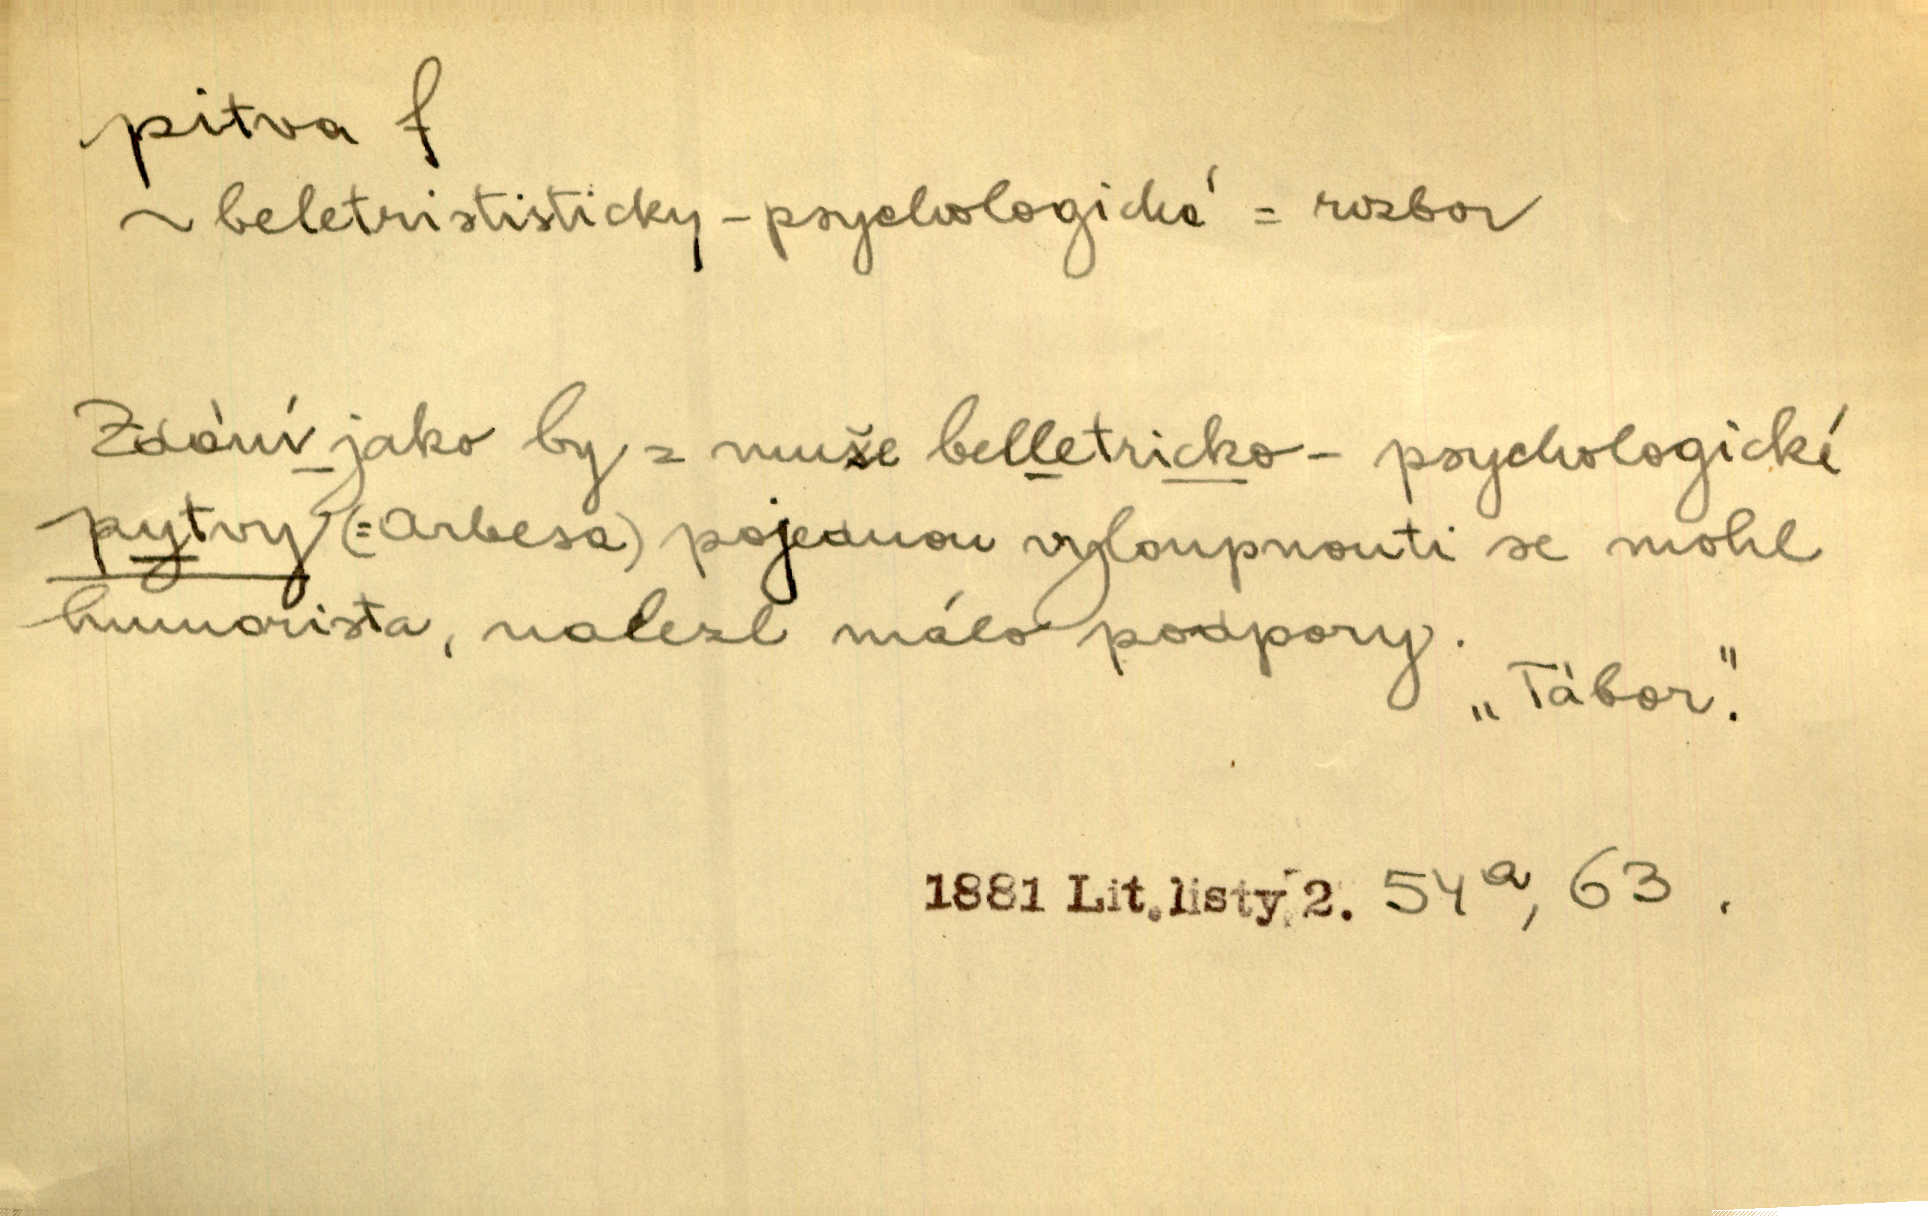 pitva f
~ beletrististicky - psychologická = rozbor
Zdání jako by z muže belletricko - psychologické
pytvy (= Arbesa) pojednou vyloupnouti se mohl
humorista, nalezl málo podpory.
„Tábor".
1881 Lit. listy, 2. 54a, 63.